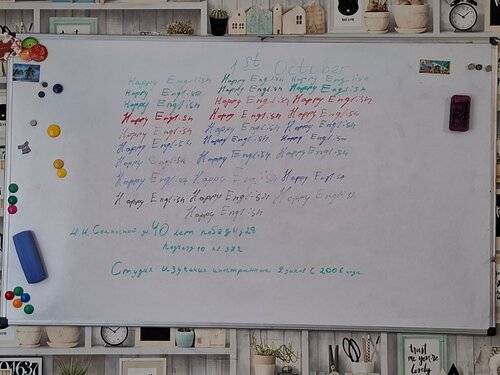 1st October
Happy English Happy English Happy English
Happy English Happy English Happy English
Happy English Happy English Happy English
Happy English Happy English Happy English
Happy English Happy English Happy English
Happy English Happy English Happy English
Happy English Happy English Happy English
Happy English Happy English Happy English
Happy English Happy English Happy English
Happy English
40 лет победы, 29
Студия изучения иностранных языков с 2006 года
trust me you're lovely